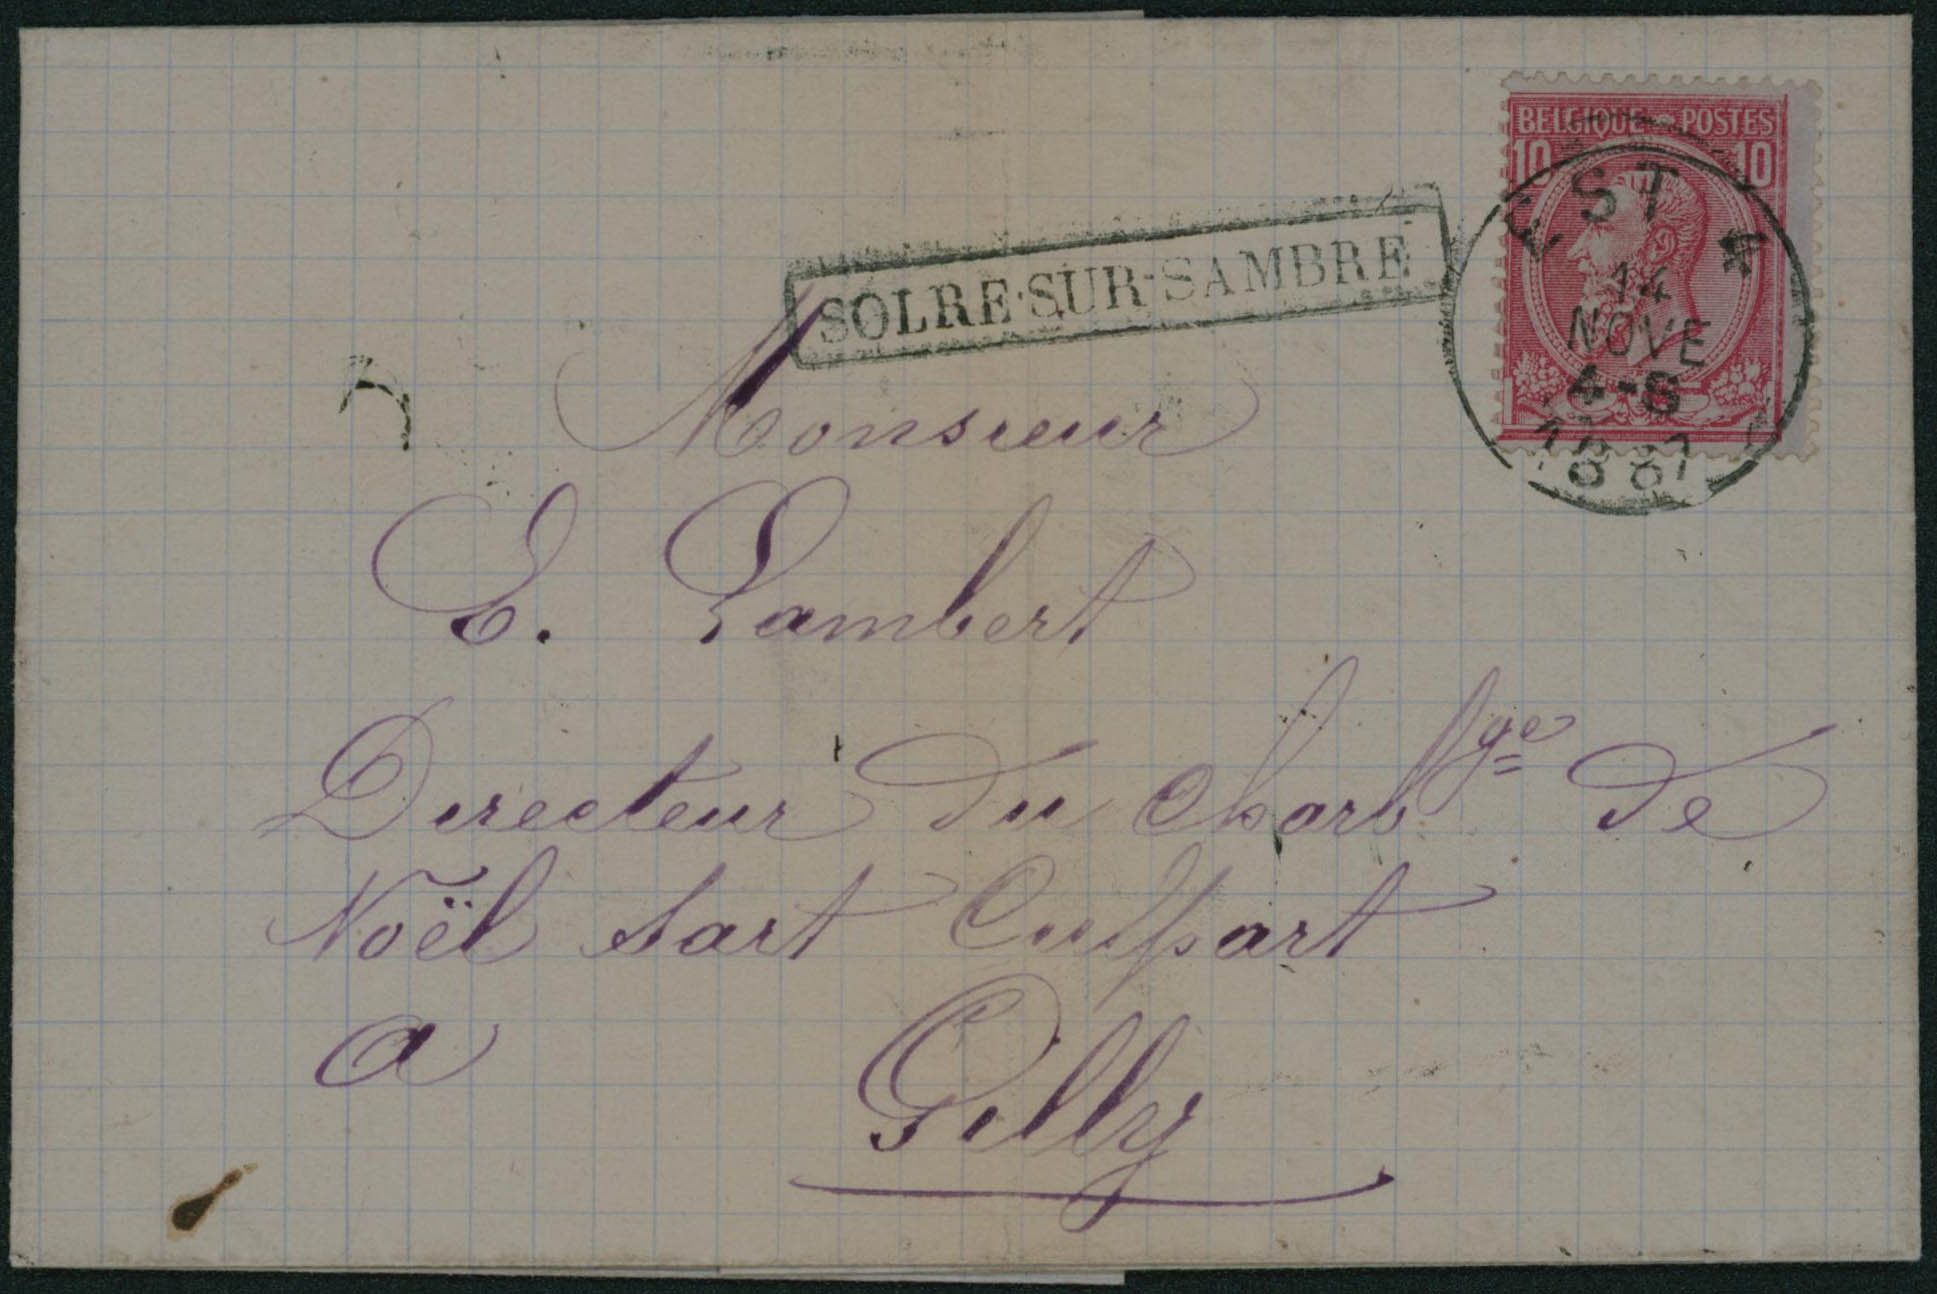 BELGIQUE POSTES
10 10
EST 4
14
NOVE
4-6
1887
SOLRE-SUR-SAMBRE
Monsieur
E. Lambert
Directeur du Charb^ge de
Noël Sart Culpart
a
Gilly